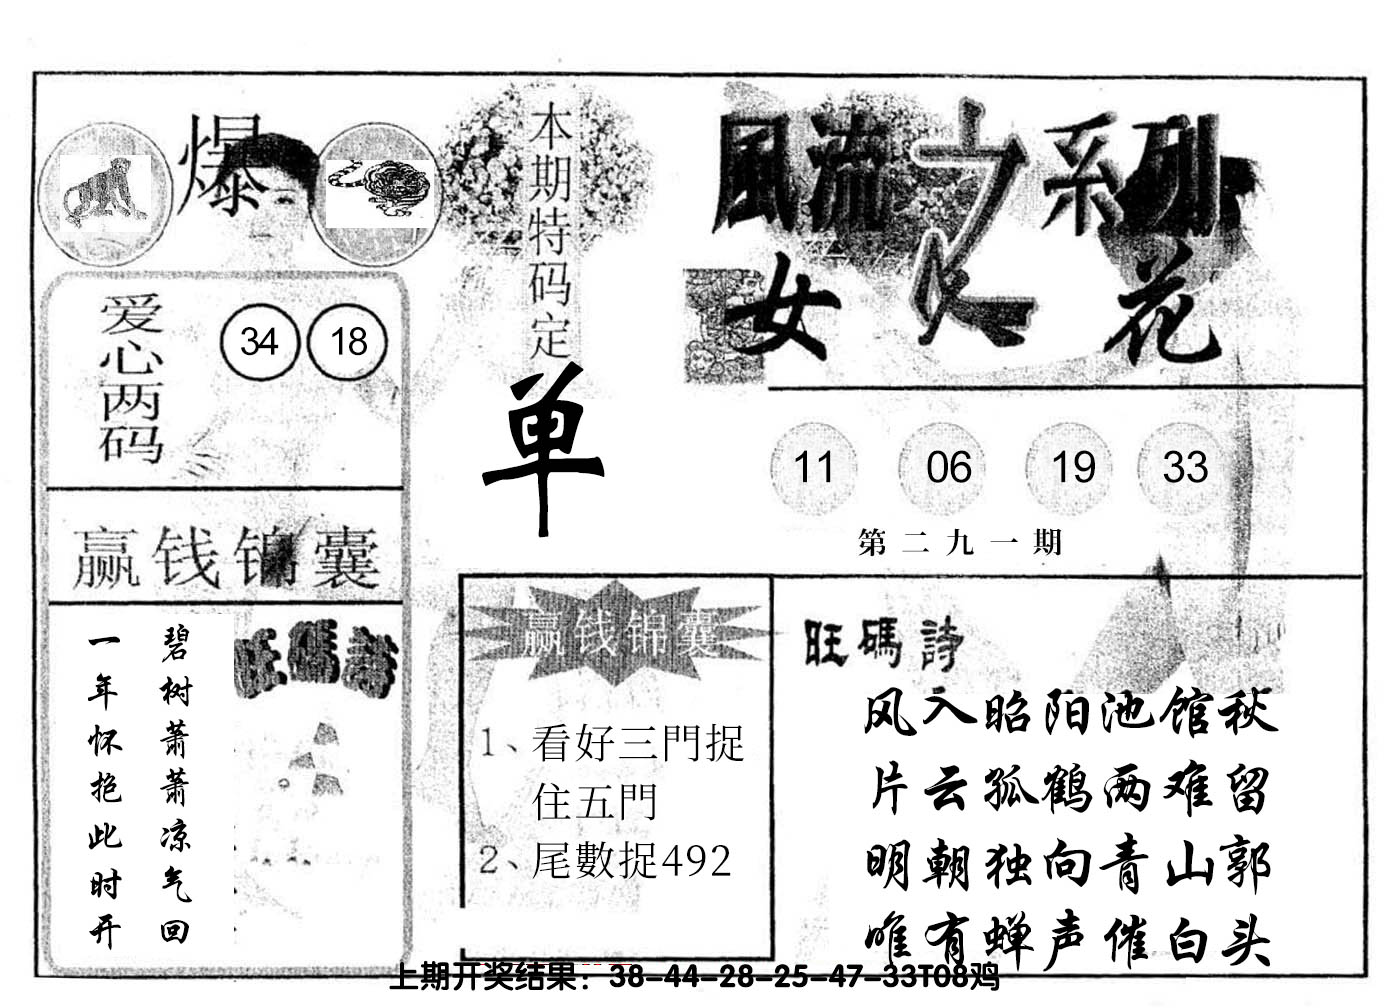 爆
爱心两码
34 18
赢钱锦囊
碧树萧萧凉气回
一年怀抱此时开
旺碼詩
本期特码定
单
風流之系列
女人花
11 06 19 33
第二九一期
赢钱锦囊
1、看好三門捉
住五門
2、尾數捉492
旺碼詩
风入昭阳池馆秋
片云孤鹤两难留
明朝独向青山郭
唯有蝉声催白头
上期开奖结果：38-44-28-25-47-33T08鸡